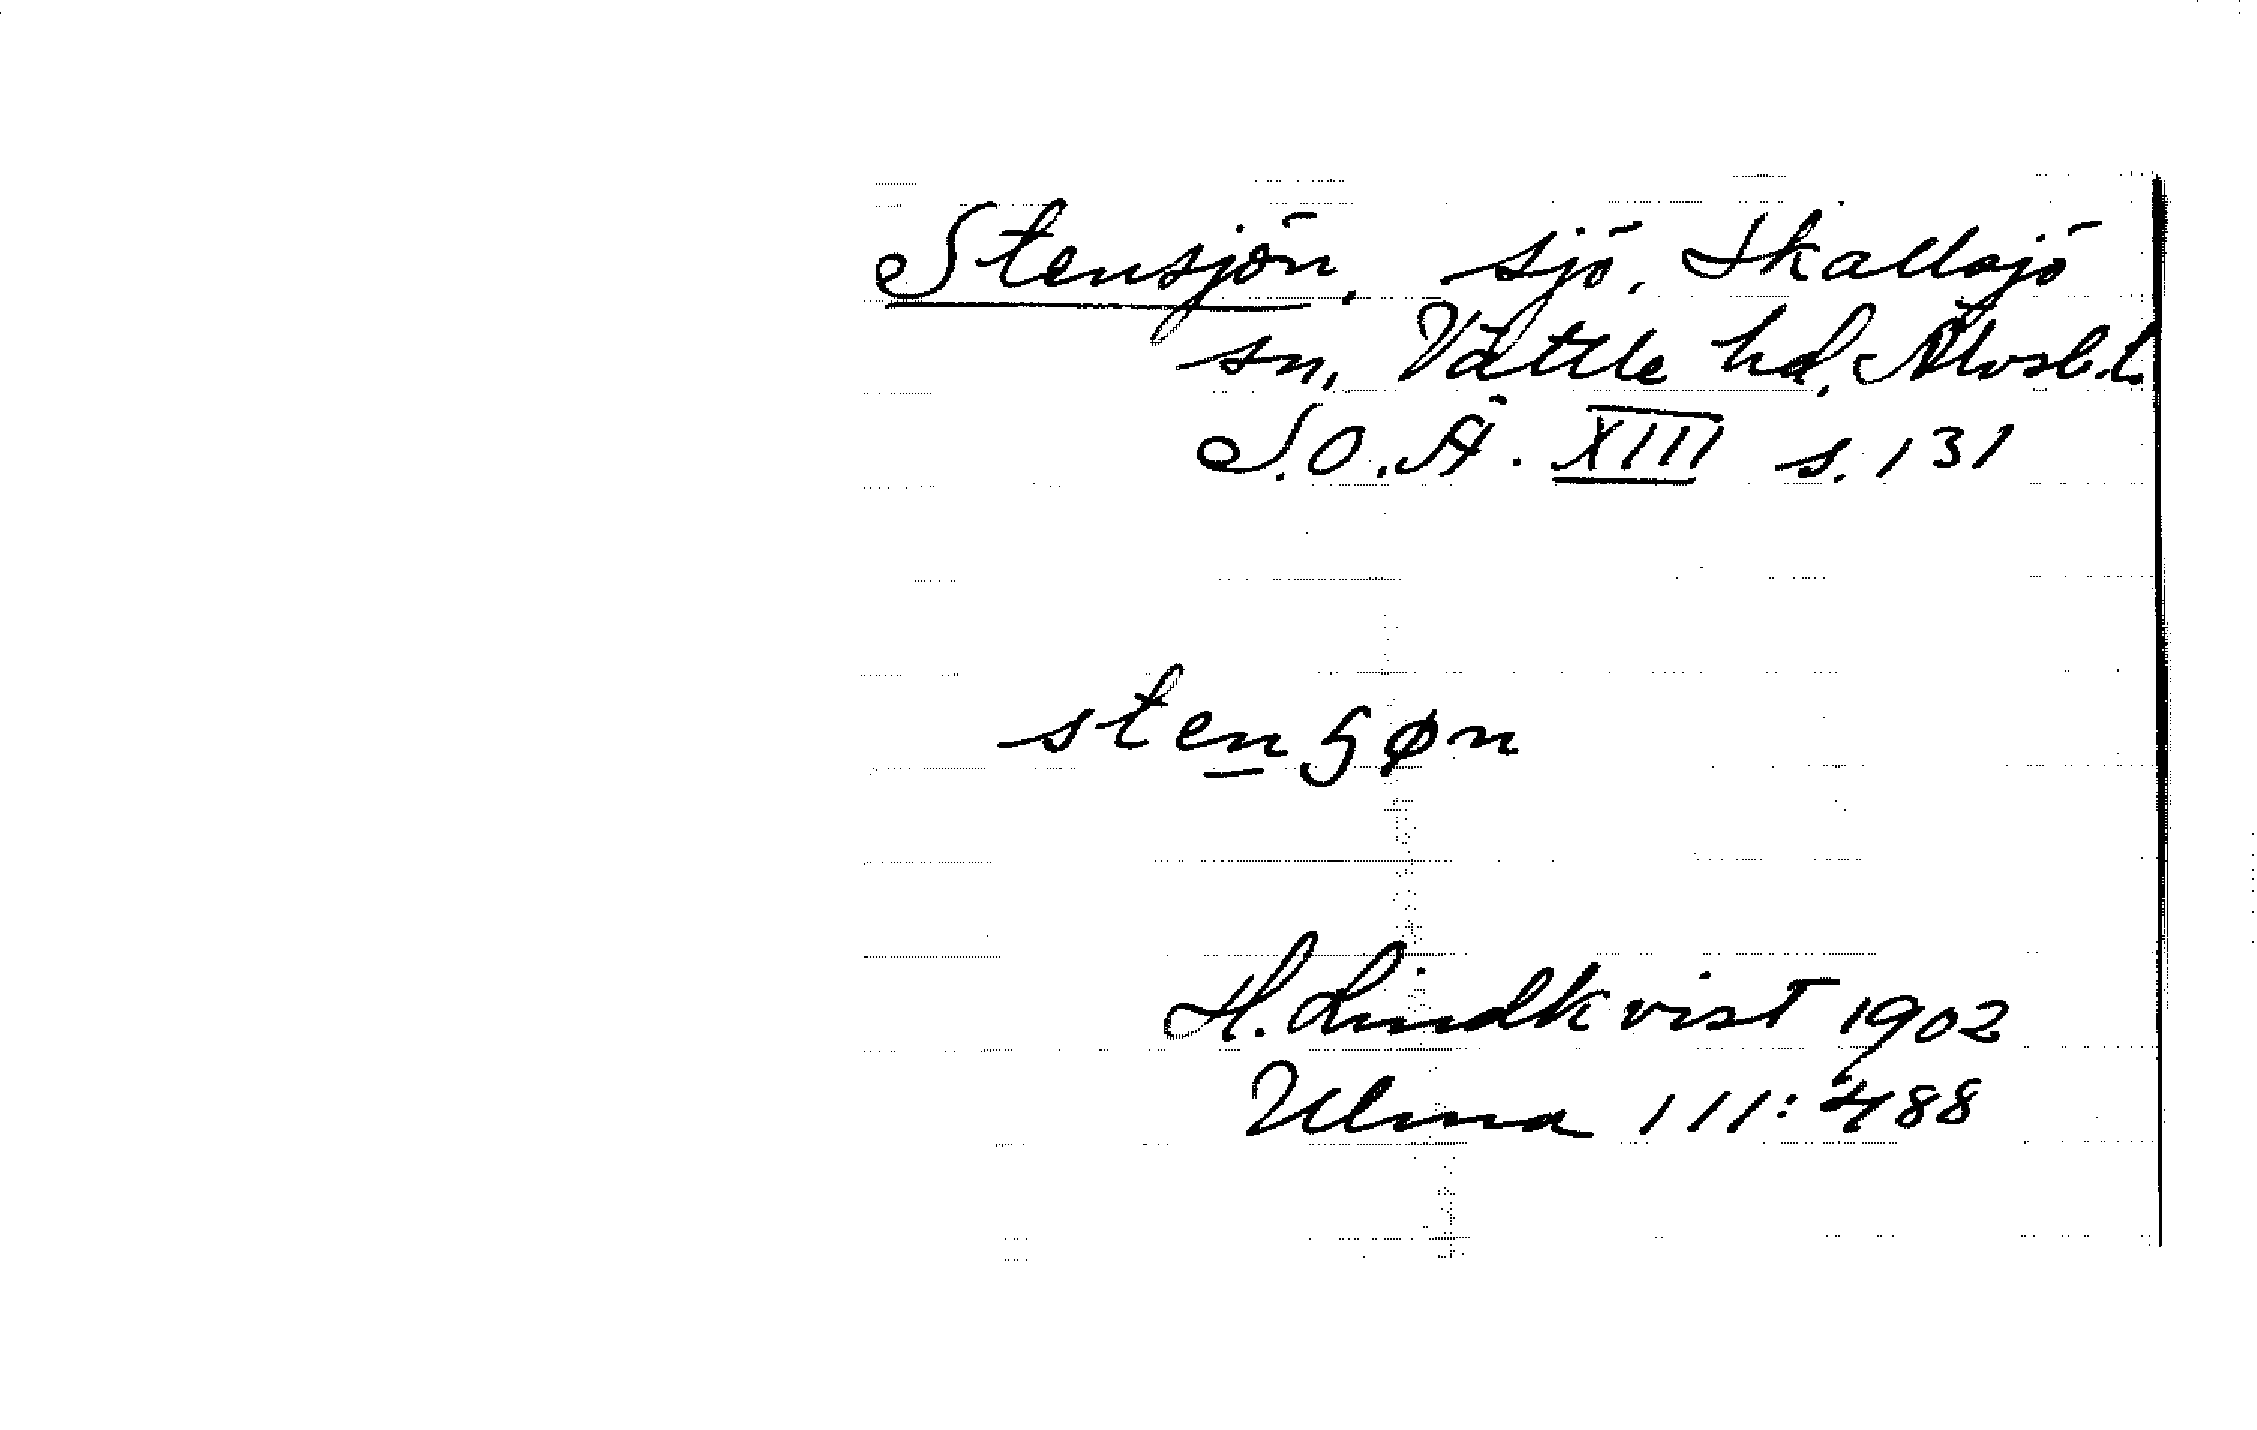 Stensjön, sjö, Skallsjö
sn, Vättle hd, Älvsb.l.
S.O.Ä. XIII s. 131
stenʂøn
H. Lindkvist 1902
Ulma 111:488